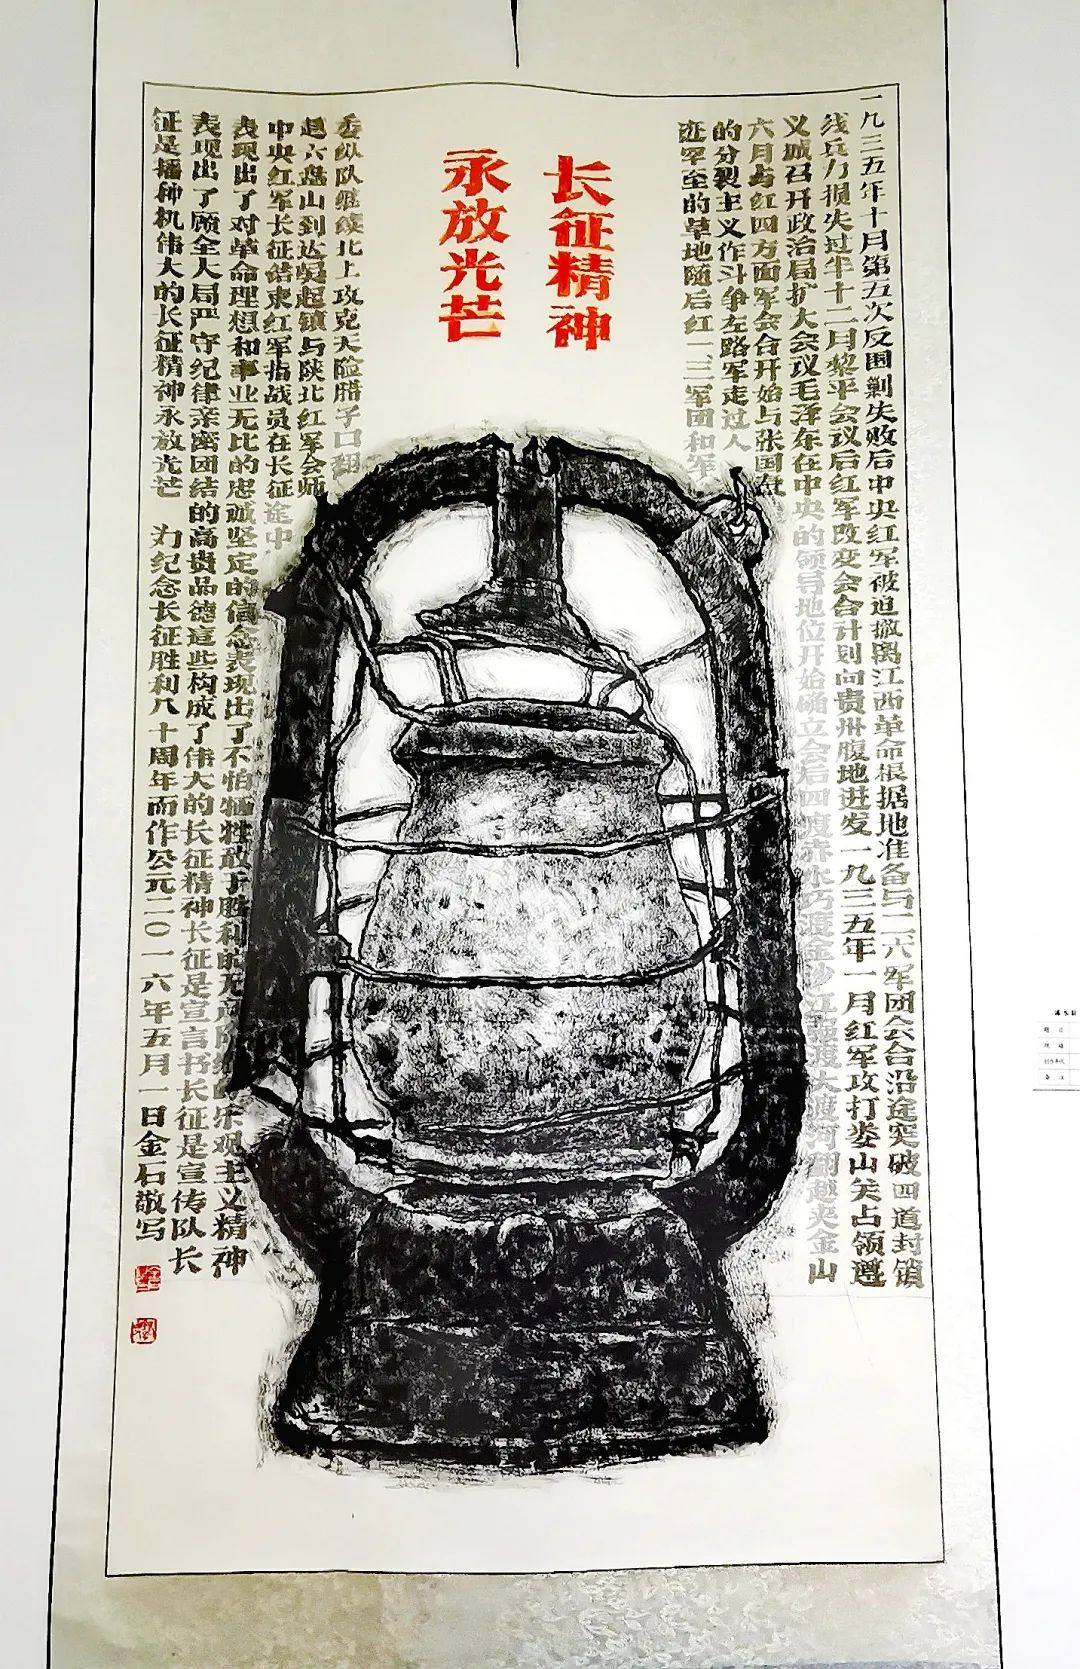 一九三五年十月第五次反围剿失败后中央红军被迫撤离江西革命根据地准备与二六军团会合沿途突破四道封锁
线兵力损失过半十二月黎平会议后红军改变会合计划向贵州腹地进发一九三五年一月红军攻打娄山关占领遵
义城召开政治局扩大会议毛泽东在中央的领导地位开始确立会后四渡赤水巧渡金沙江强渡大渡河翻越夹金山
六月与红四方面军会合开始与张国焘
的分裂主义作斗争左路军走过人
迹罕至的草地随后红一三军团和军
长征精神
永放光芒
委纵队继续北上攻克天险腊子口翻
越六盘山到达吴起镇与陕北红军会师
中央红军长征结束红军指战员在长征途中
表现出了对革命理想和事业无比的忠诚坚定的信念表现出了不怕牺牲敢于胜利的无产阶级的乐观主义精神
表现出了顾全大局严守纪律亲密团结的高贵品德这些构成了伟大的长征精神长征是宣言书长征是宣传队长
征是播种机伟大的长征精神永放光芒 为纪念长征胜利八十周年而作公元二〇一六年五月一日金石敬写